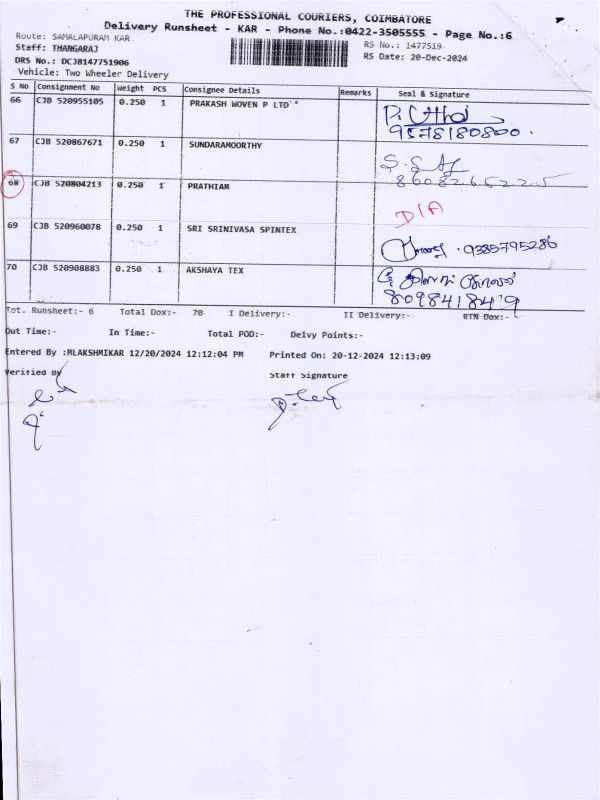 THE PROFESSIONAL COURIERS, COIMBATORE
Delivery Runsheet - KAR - Phone No.:0422-3505555 - Page No.:6
Route: SAMALAPURAM KAR
RS No.: 1477519
Staff: THANGARAJ
RS Date: 20-Dec-2024
DRS No.: DCJB147751906
Vehicle: Two Wheeler Delivery
S No Consignment No Weight PCS Consignee Details Remarks Seal & Signature
66 CJB 520955105 0.250 1 PRAKASH WOVEN P LTD
9578180800.
67 CJB 520867671 0.250 1 SUNDARAMOORTHY
68 CJB 520804213 0.250 1 PRATHIAM
D/A
69 CJB 520960078 0.250 1 SRI SRINIVASA SPINTEX
9385795286
70 CJB 520908883 0.250 1 AKSHAYA TEX
8098418419
Tot. Runsheet:- 6 Total Dox:- 70 I Delivery:- II Delivery:- RTN Dox:-
Out Time:- In Time:- Total POD:- Delvy Points:-
Entered By :MLAKSHMIKAR 12/20/2024 12:12:04 PM Printed On: 20-12-2024 12:13:09
Verified By Staff Signature